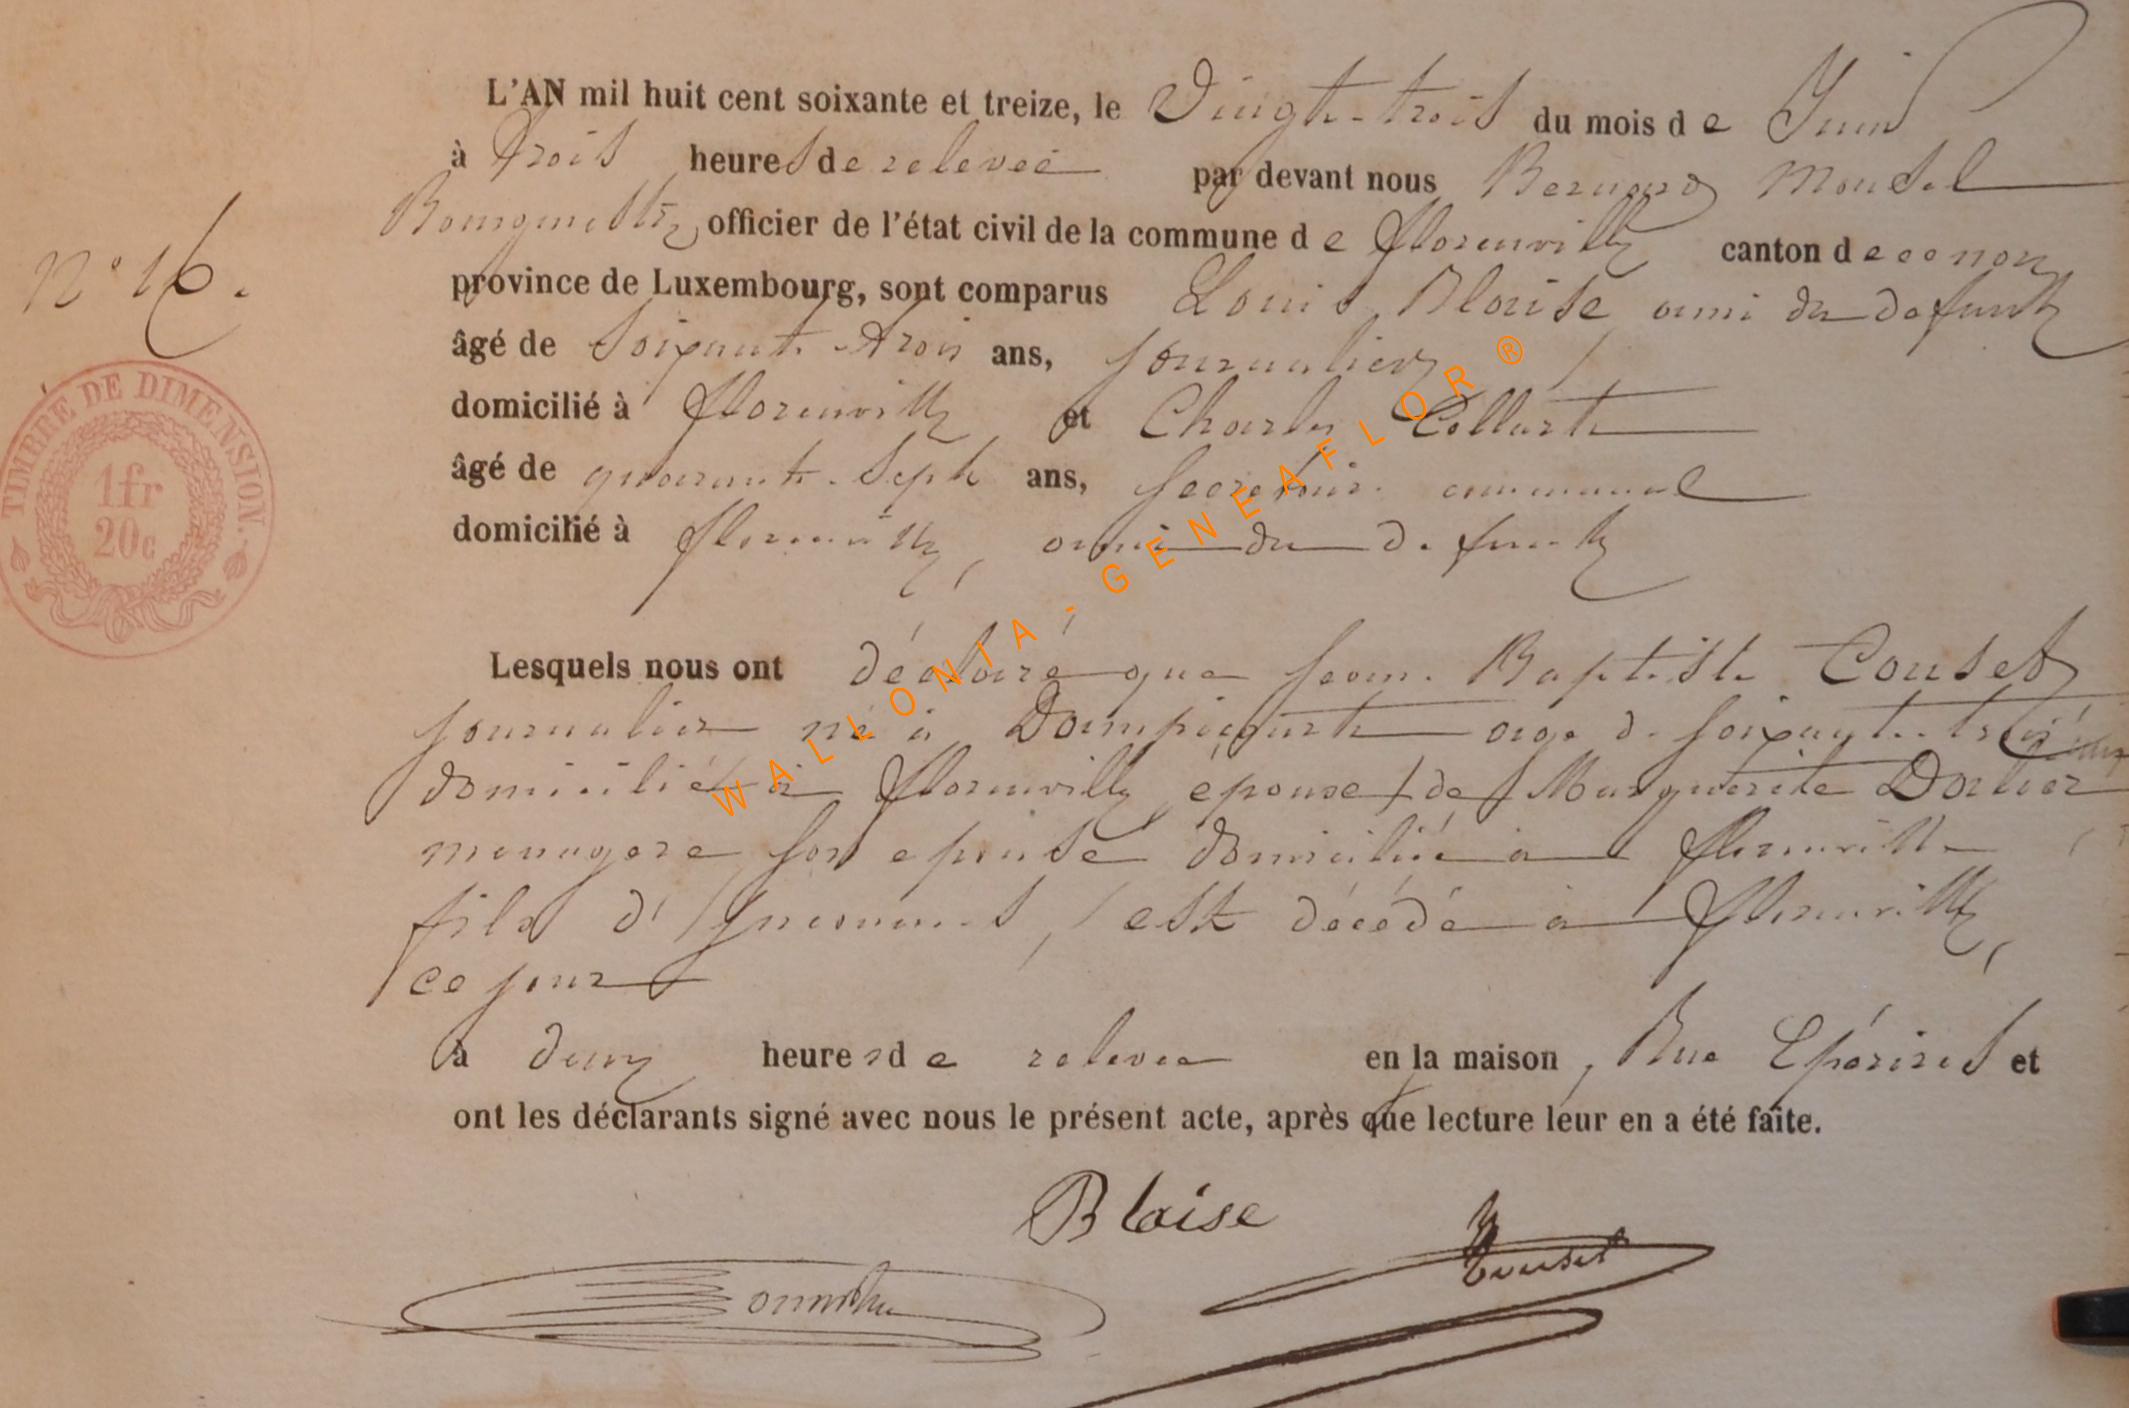 L'AN mil huit cent soixante et treize, le Vingt-trois du mois de Juin
à trois heures de relevée par devant nous Bernard Mousel
Bourgmestre, officier de l'état civil de la commune de Florenville canton de
province de Luxembourg, sont comparus Louis Blaise ami du defunt
N° 16.
âgé de Soixante trois ans, journalier
domicilié à Florenville et Charles Collart
âgé de quarante-sept ans, Secretaire communal
domicilié à Florenville, ami du defunt
TIMBRE DE DIMENSION.
1fr
20c
Lesquels nous ont déclaré que Jean Baptiste Couset
journalier né à Dampicourt age de soixante trois ans
domicilié à Florenville, épouse de Marguerite
menagere son epouse domiciliée à Florenville
fils d'Inconnus, est décédé à Florenville,
ce jour
à deux heures de relevee en la maison, Rue Epérires et
ont les déclarants signé avec nous le présent acte, après que lecture leur en a été faite.
Blaise
WALLONIA-GENEAFLOR ®